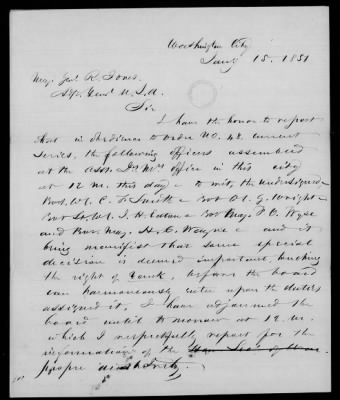 Washington City
Jany 15. 1851
Maj. Genl R. Jones.
Adjt. Genl U.S.A.
Sir
I have the honor to report
that in obedience to order No. 48 current
series, the following officers assembled
at the Asst. Qr Mr's office in this city
at 12 m. this day — to wit, the undersigned —
Bvt. Col. C. F. Smith — Bvt Col. G. Wright —
Bvt Lt. Col. J. H. Eaton — Bvt Maj. F. O. Wyse
and Bvt. Maj. H. C. Wayne — and it
being manifest that some special
decision is deemed important, touching
the right of rank, before the board
can harmoniously enter upon the duties
assigned it, I have adjourned the
board until to morrow at 12 m.
which I respectfully report for the
information of the Hon. Sec. of War
proper authority.